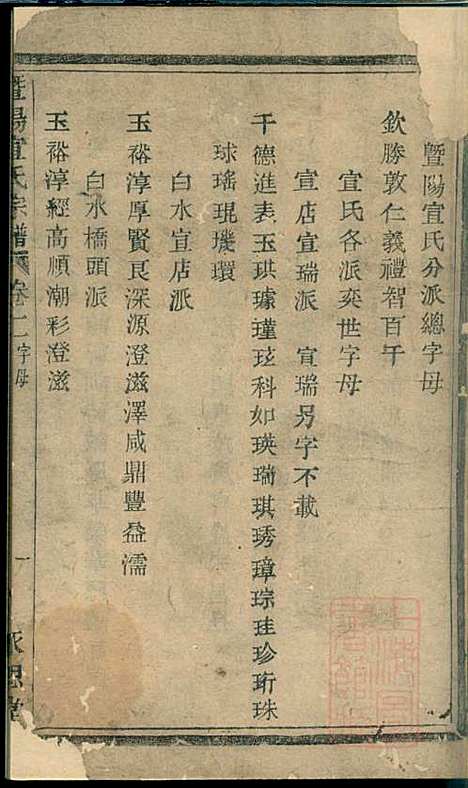 暨陽宣氏分派總字母
欽勝敦仁義禮智百千
宣氏各派奕世字母
宣店宣瑞派 宣瑞另字不載
千德進表玉琪璩瑾玹科如瑛瑞琪琇璋琮珪珍珩珠
球瑤琨璣環
白水宣店派
玉裕淳厚賢良深源澄滋澤咸鼎豐益濡
白水橋頭派
玉裕淳經高順潮彩澄滋
暨陽宣氏宗譜 卷二 字母 一